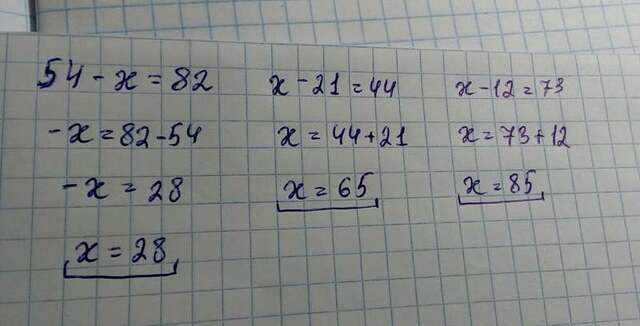 54 - x = 82
-x = 82-54
-x = 28
x = 28
x - 21 = 44
x = 44+21
x = 65
x - 12 = 73
x = 73+12
x = 85